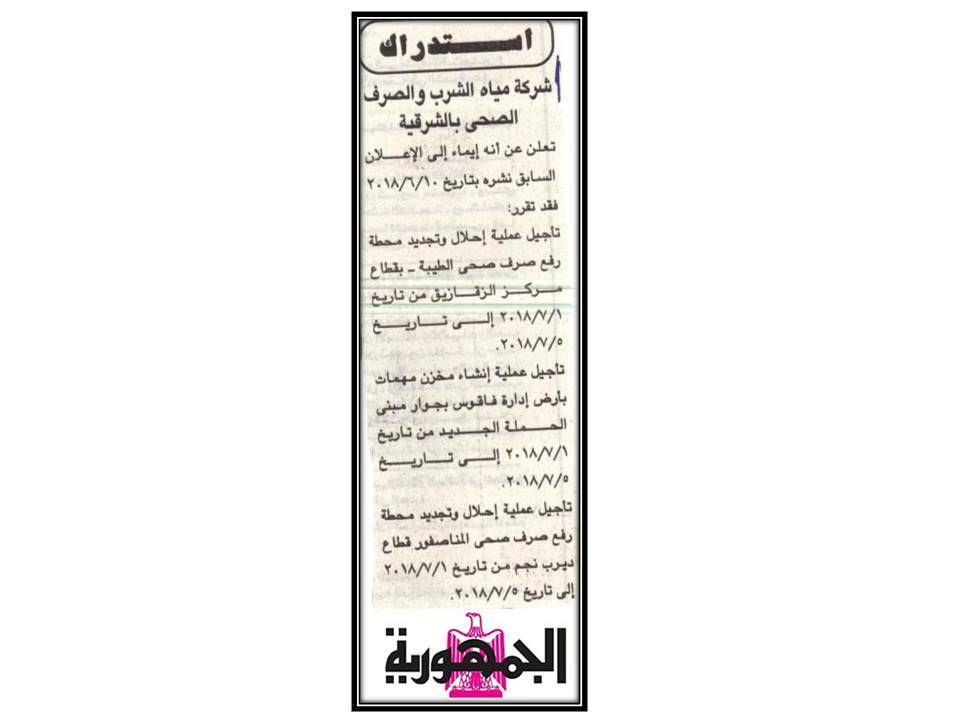 استدراك
شركة مياه الشرب والصرف
الصحى بالشرقية
تعلن عن أنه إيماء إلى الإعلان
السابق نشره بتاريخ ٢٠١٨/٦/١٠
فقد تقرر:
تأجيل عملية إحلال وتجديد محطة
رفع صرف صحى الطيبة - بقطاع
مركز الزقازيق من تاريخ
٢٠١٨/٧/١ إلى تاريخ
٢٠١٨/٧/٥.
تأجيل عملية إنشاء مخزن مهمات
بأرض إدارة فاقوس بجوار مبنى
الحملة الجديد من تاريخ
٢٠١٨/٧/١ إلى تاريخ
٢٠١٨/٧/٥.
تأجيل عملية إحلال وتجديد محطة
رفع صرف صحى المناصفور قطاع
ديرب نجم من تاريخ ٢٠١٨/٧/١
إلى تاريخ ٢٠١٨/٧/٥.
الجمهورية